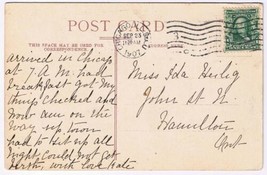 POST CARD
THIS SPACE MAY BE USED FOR
CORRESPONDENCE
CHICAGO
SEP 23
1907
arrived in Chicago
at 7 A.M. had
breakfast got my
things checked and
now am on the
way up town
had to sit up all
night, could not get
berth, with love Kate
Miss Ida
John St N.
Hamilton
Ont